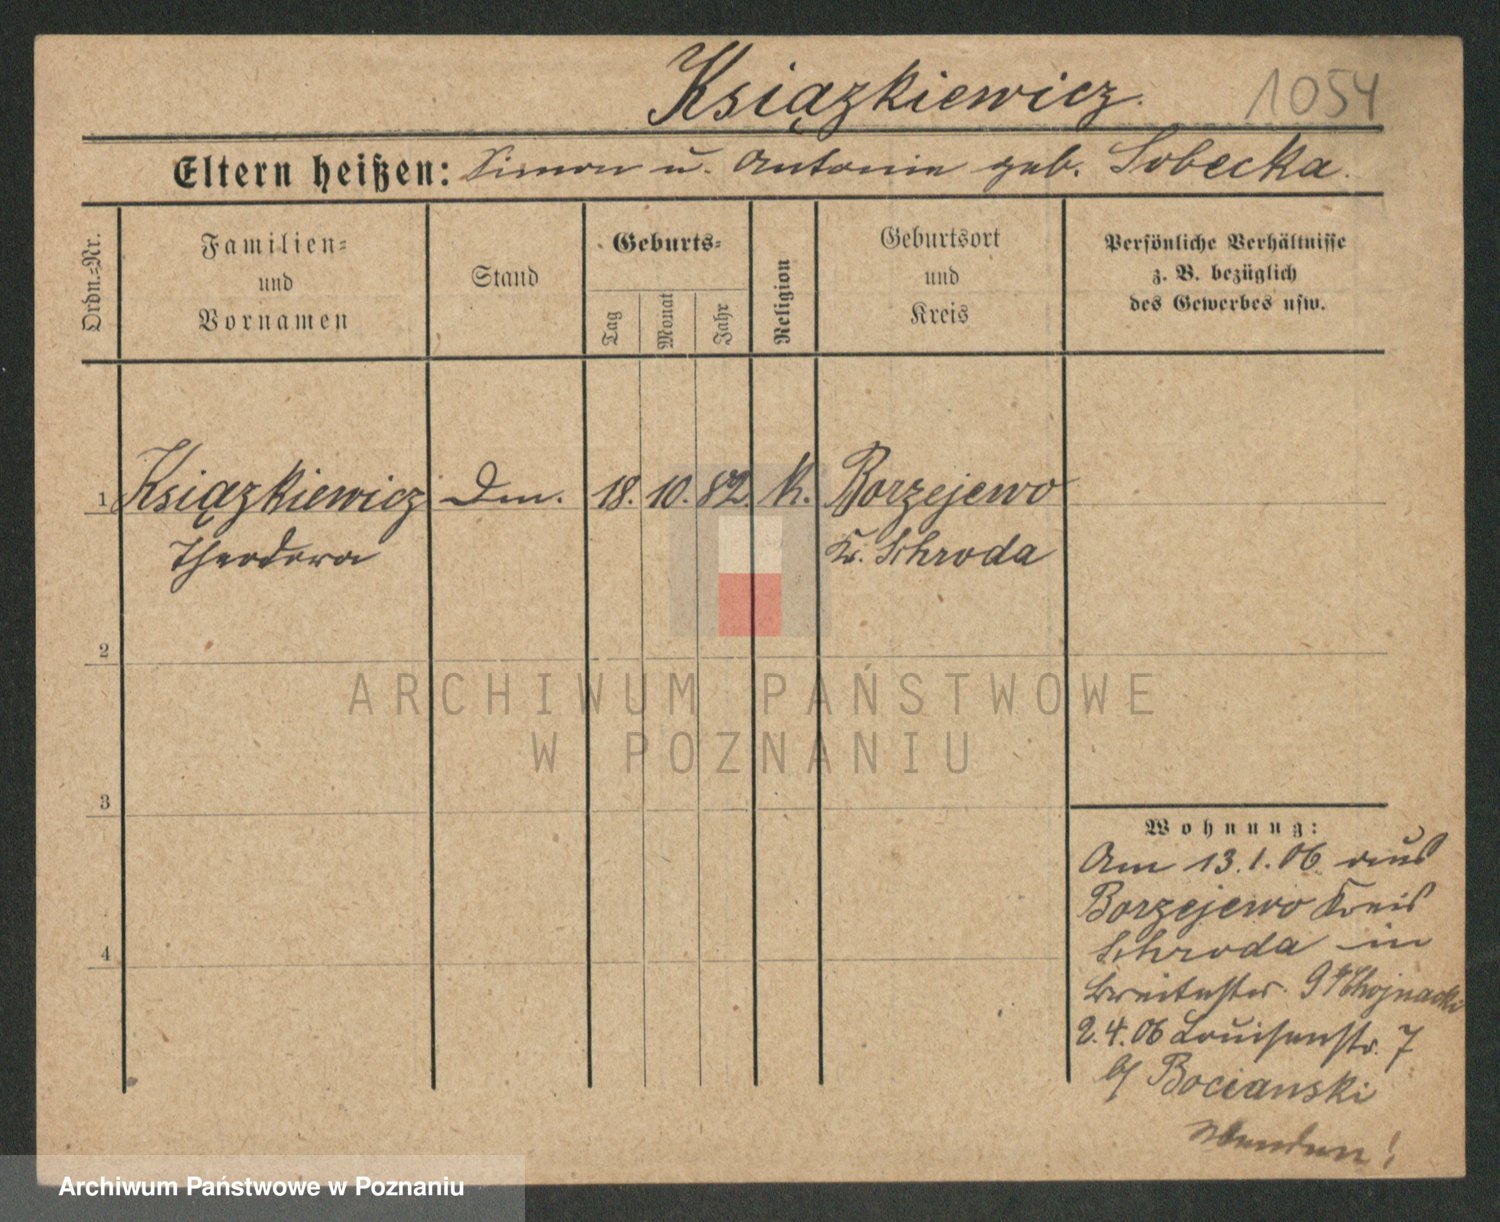 Książkiewicz.
1054
Eltern heißen: Simon u. Antonie geb. Sobecka.
Ordn.=Nr.
Familien=
und
Vornamen
Stand
Geburts=
Tag
Monat
Jahr
Religion
Geburtsort
und
Kreis
Persönliche Verhältnisse
z. B. bezüglich
des Gewerbes usw.
1 Książkiewicz 18. 10. 82. K. Borzejewo
Theodora Kr. Schroda
2
3
4
Wohnung:
Am 13.1.06 aus
Borzejewo Kreis
Schroda in
Breitestr. 9 Chojnacki
2.4.06 Louisenstr. 7
b/ Bocianski
Wenden!
ARCHIWUM PAŃSTWOWE
W POZNANIU
Archiwum Państwowe w Poznaniu